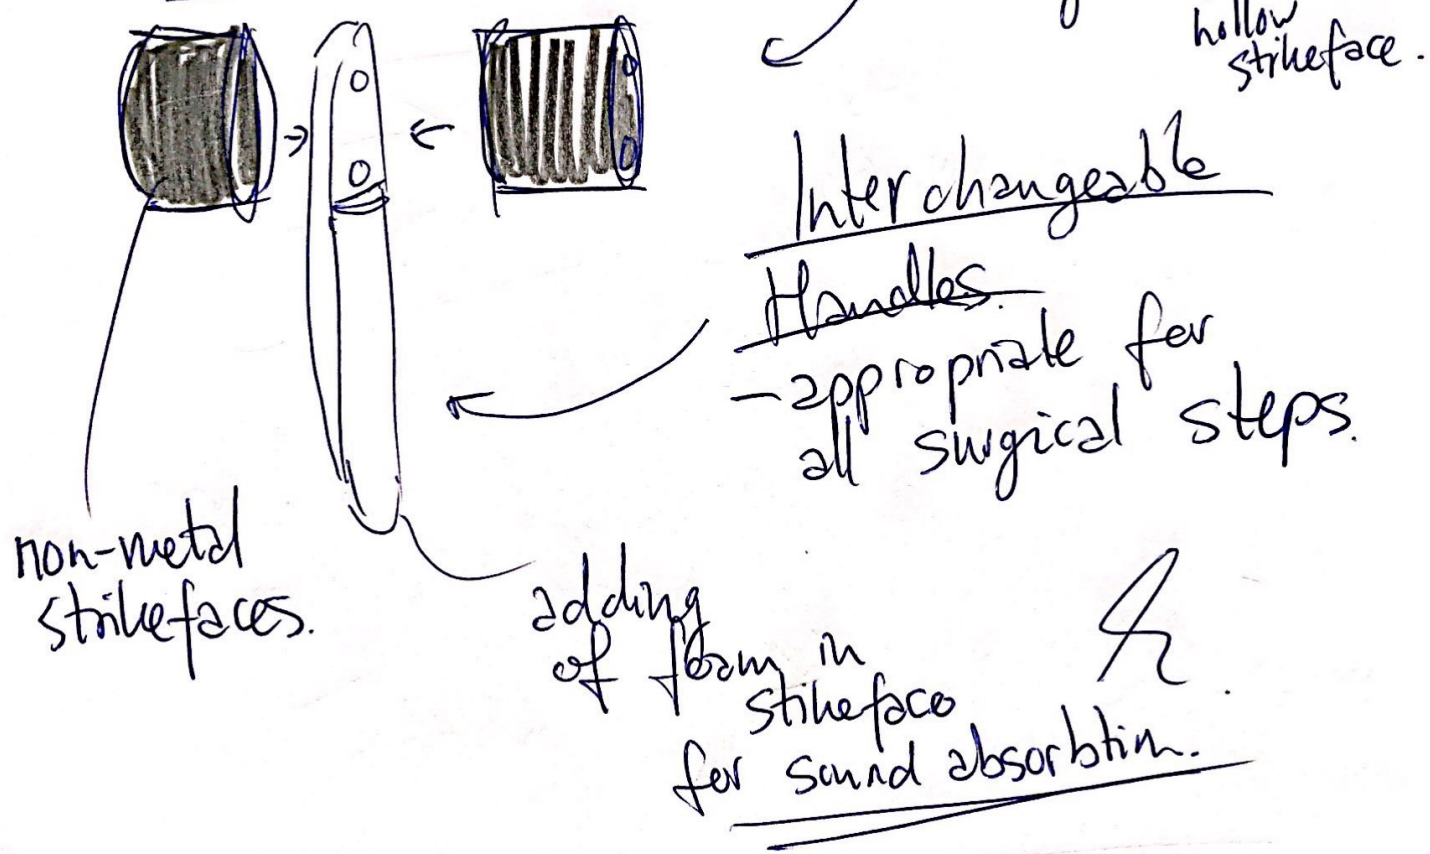 hollow
strikeface.
Interchangeable
Handles.
- appropriate for
all surgical steps.
non-metal
strikefaces.
adding
of foam in
stikeface
for sound absorbtion.